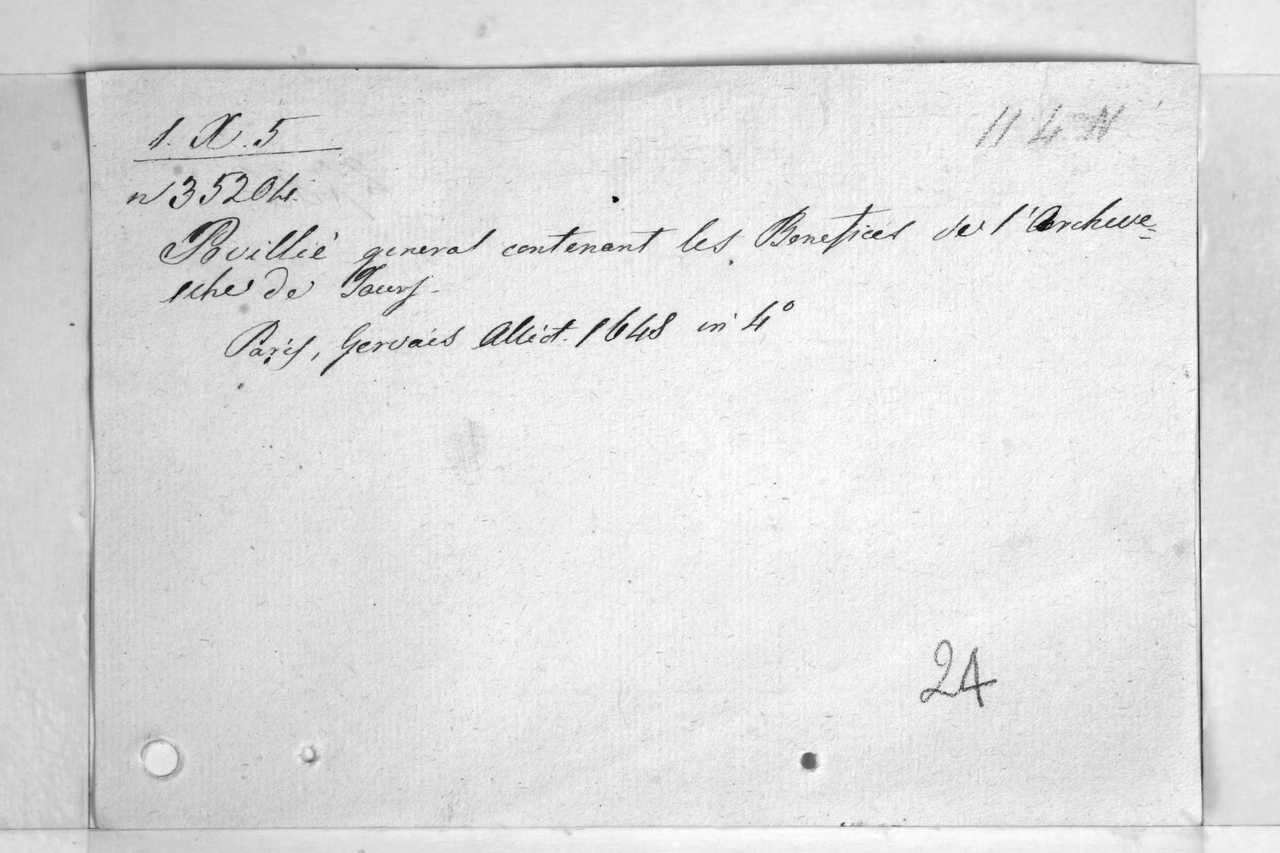 1. X. 5
11 4 N
n 35204.
Pouillié general contenant les Benefices de l'Archeve-
sche de Tours.
Paris, Gervais Alliot. 1648 in 4°
24